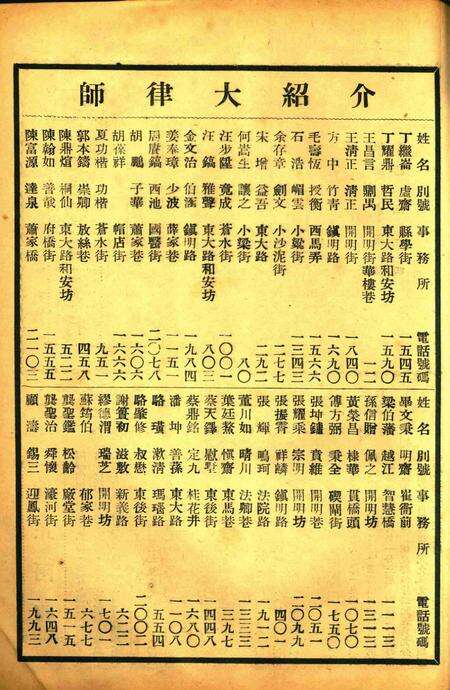 介紹大律師
姓名 別號 事務所 電話號碼
丁繼崙 虛齋 縣學街 一五四五
丁耀鼎 哲民 東大路和安坊 一五九〇
王昌言 禺 開明街華樓巷 一一二
王淸正 淸正 開明街 一八四〇
方中 竹靑 鎭明路 一六九〇
毛壽恆 授衡 西馬弄 一五六六
石浩 嵋雲 小梁街 一三四三
余存章 劍文 小沙泥街 二七七
宋增 益吾 東大路 二九二
何嵩生 讓之 小梁街 八〇
汪步陞 竟成 蒼水街 一〇〇一
汪鎬 雅聲 東大路和安坊 八〇三
金文治 伯滙 鎭明路 一九八四
姜奉璋 少波 薛家巷 一一五一
周賡鎬 西池 國醫街 二〇七八
胡鵬 子華 蕭家巷 一六〇六
胡葆祥 帽店街 一六六六
夏功楷 功楷 蒼水街 九五一
郭本鑄 崇卿 放絲巷 四五八
陳鼎煊 桐仙 東大路和安坊 五二二
陳翰如 善哉 府橋街 一五五五
陳富源 達泉 蕭家橋 二一〇三
姓名 別號 事務所 電話號碼
畢文秉 明齋 崔衙前 一一一三
梁伯藩 越江 智慧橋 一三八一
孫信贈 佩之 開明坊 一三一三
黃榮昌 棣華 貫橋頭 一〇七〇
傅方弼 秉全 磾閘街 一七五〇
張坤鏞 賁維 開明巷 二〇五一
張耀乘 宗明 開明坊 二〇九九
張援霄 祥麟 鎭明路 四〇一
張輝 鳴珂 法院路 一九一二
董川如 晴川 法卿巷 一三三三
葉廷驁 愼齋 東馬巷 三九七
蔡天鐸 慰墅 東後街 一四四八
蔡鼎銘 定九 桂花井 一六八〇
潘坤 善蓀 東大路 一一〇八
駱璜 漱淸 瑪瑙路 五五四
駱肇修 叔懋 東後街 二〇〇二
謝蓂初 滋敷 新義路 六二二
繆德渭 瑞芝 開明坊 一七〇一
蘇筠伯 郁家巷 六七七
龔聖鑑 松齡 廠堂街 一五一五
龔聖治 舜懷 濠河街 一六四八
顧濤 錫三 迎鳳街 一九九三